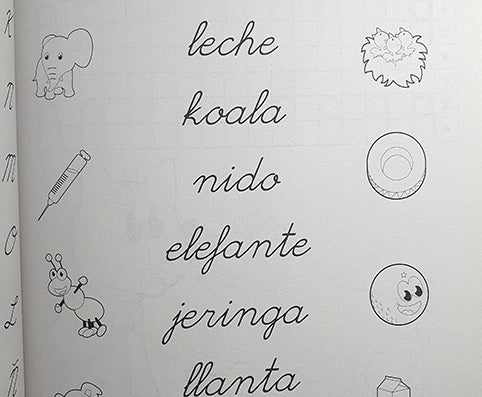 leche
koala
nido
elefante
jeringa
llanta